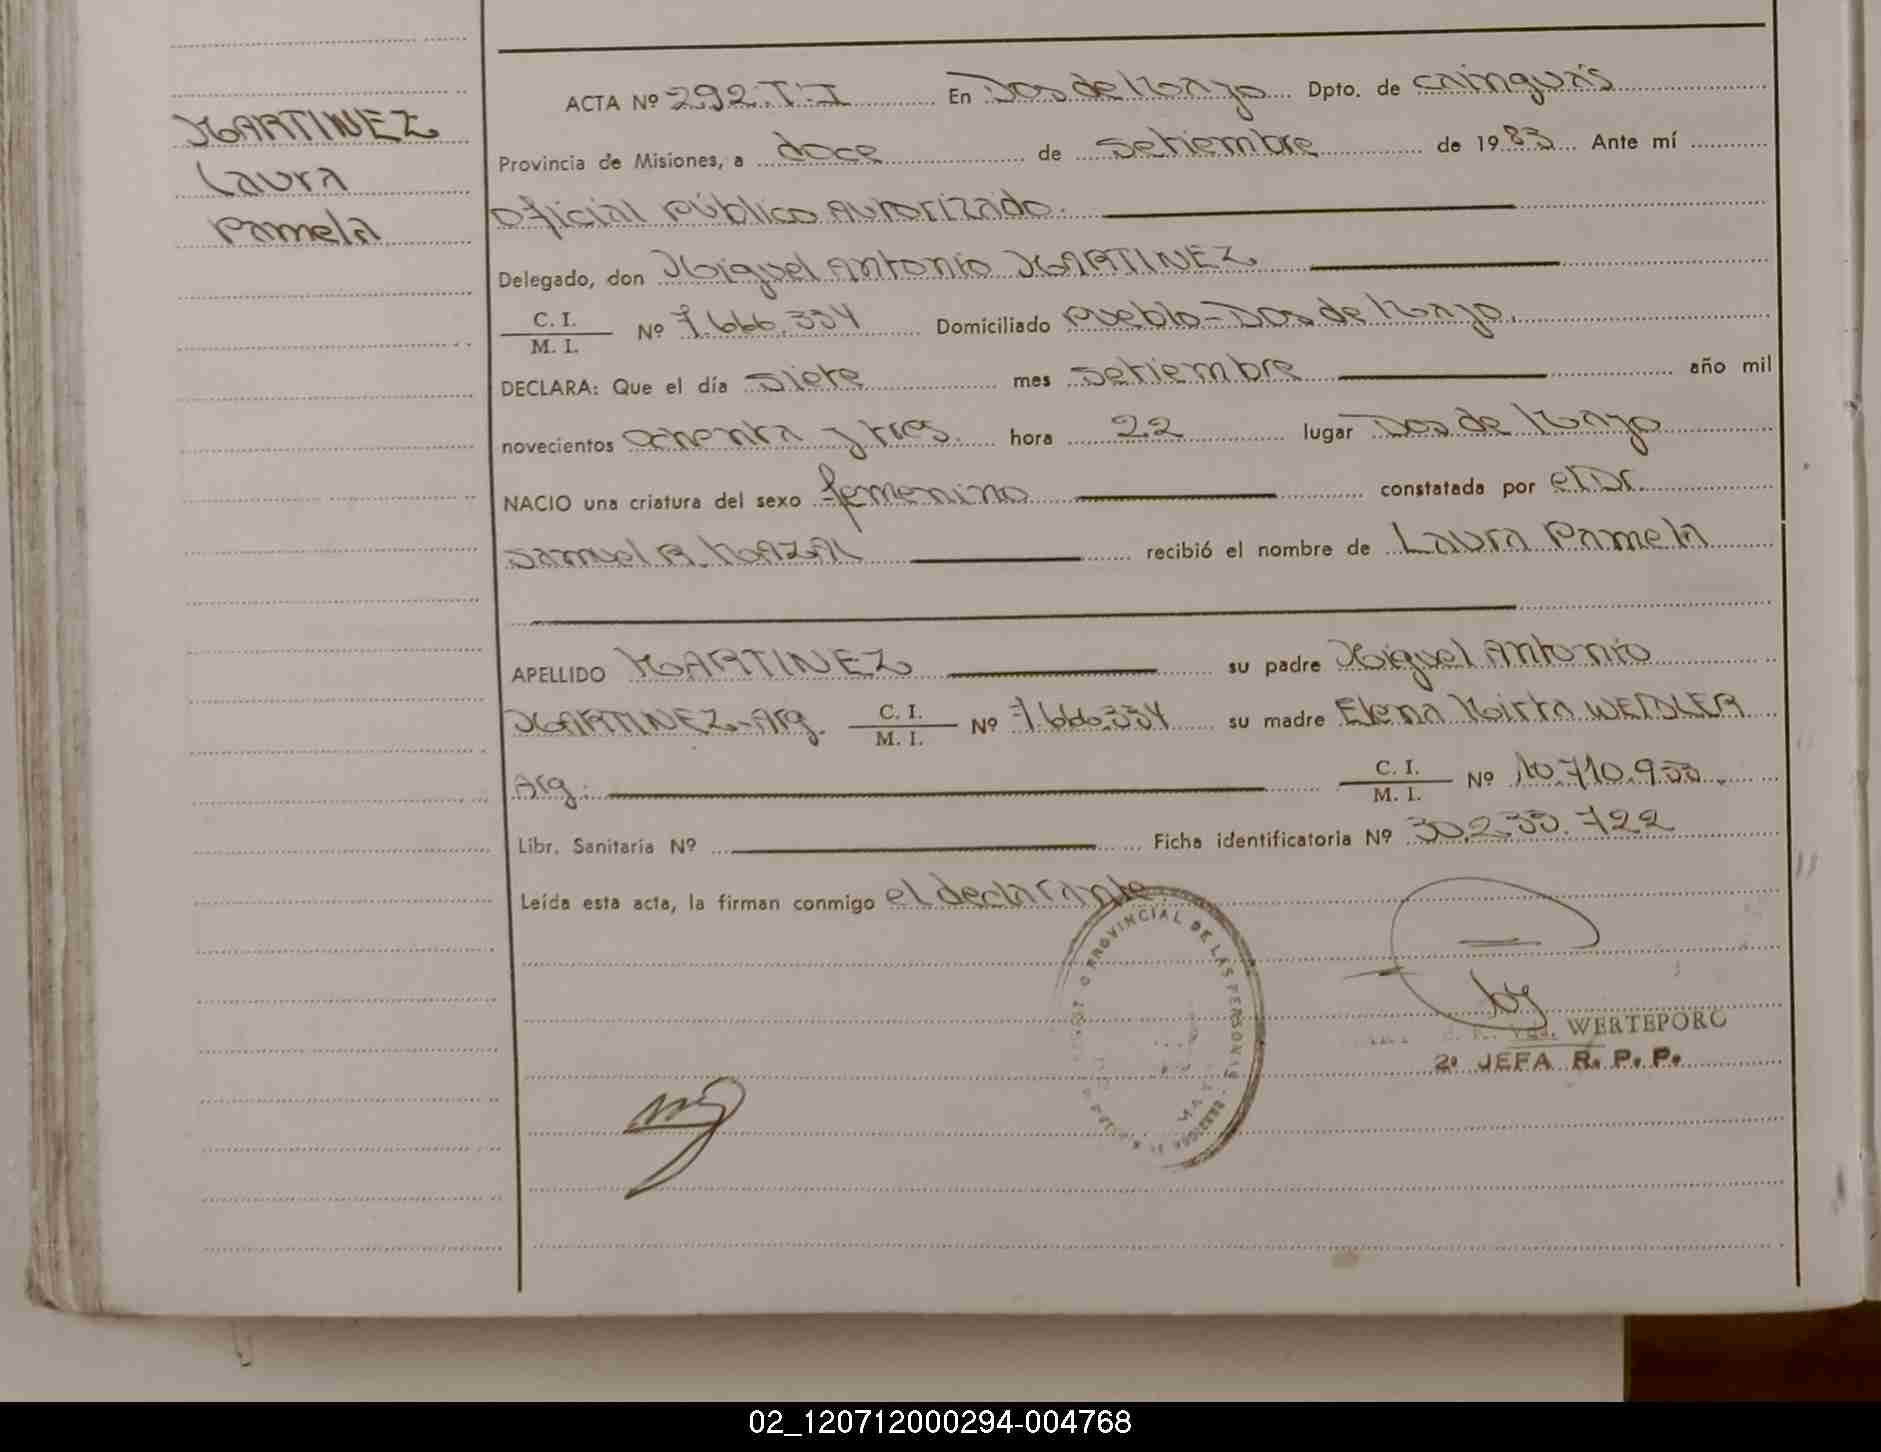 MARTINEZ
Laura
Pamela
ACTA Nº 292.T.I En Dos de Mayo Dpto. de Cainguás
Provincia de Misiones, a doce de setiembre de 1983 Ante mí
Oficial Público Autorizado.
Delegado, don Miguel Antonio MARTINEZ
C. I.
M. I. Nº 7.666.334 Domiciliado Pueblo-Dos de Mayo.
DECLARA: Que el día siete mes setiembre año mil
novecientos ochenta y tres. hora 22 lugar Dos de Mayo
NACIO una criatura del sexo femenino constatada por el Dr.
Samuel R. MAZAL recibió el nombre de Laura Pamela
APELLIDO MARTINEZ su padre Miguel Antonio
MARTINEZ-Arg. C. I.
M. I. Nº 7.666.334 su madre Elena Mirta WEIDLER
Arg. C. I.
M. I. Nº 10.710.933
Libr. Sanitaria Nº Ficha identificatoria Nº 30.233.722
Leída esta acta, la firman conmigo el declarante.
PROVINCIAL DE LAS PERSONAS
Vda. WERTEPORC
2ª JEFA R. P. P.
02_120712000294-004768